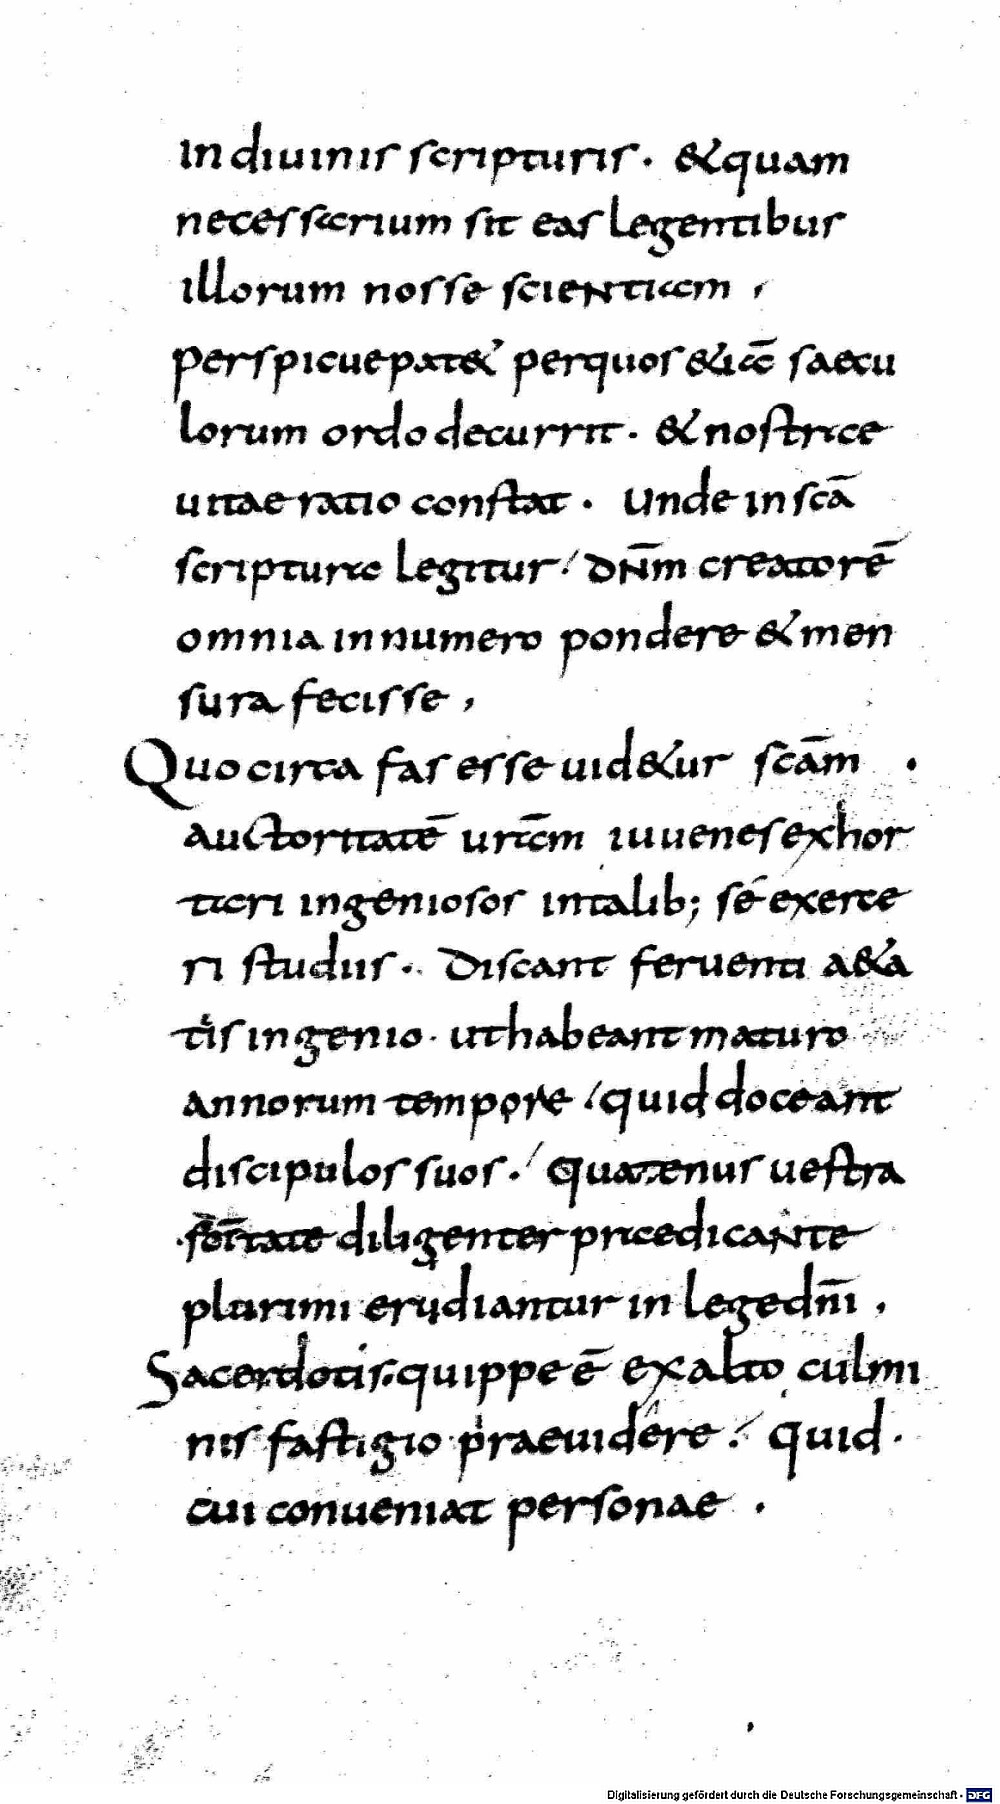 In diuinis scripturis. & quam
necessarium sit eas legentibus
illorum nosse scientiam,
perspicue pat& per quos & ia saecu
lorum ordo decurrit. & nostrae
uitae ratio constat. Unde in scā
scriptura legitur / dn̄m creatorē
omnia in numero pondere & men
sura fecisse,
Quo circa fas esse uid&ur scām .
auctoritatē urām iuuenes exhor
tari ingeniosos in talib; sé exerce
ri studiis. Discant feruenti a&a
tis ingenio. ut habeant maturo
annorum tempore / quid doceant
discipulos suos./ Quatenus uestra
diligenter praedicante
plurimi erudiantur in lege dn̄i,
Sacerdotis quippe ē ex alto culmi
nis fastigio praeuidere./ quid.
cui conueniat personae.
Digitalisierung gefördert durch die Deutsche Forschungsgemeinschaft - DFG